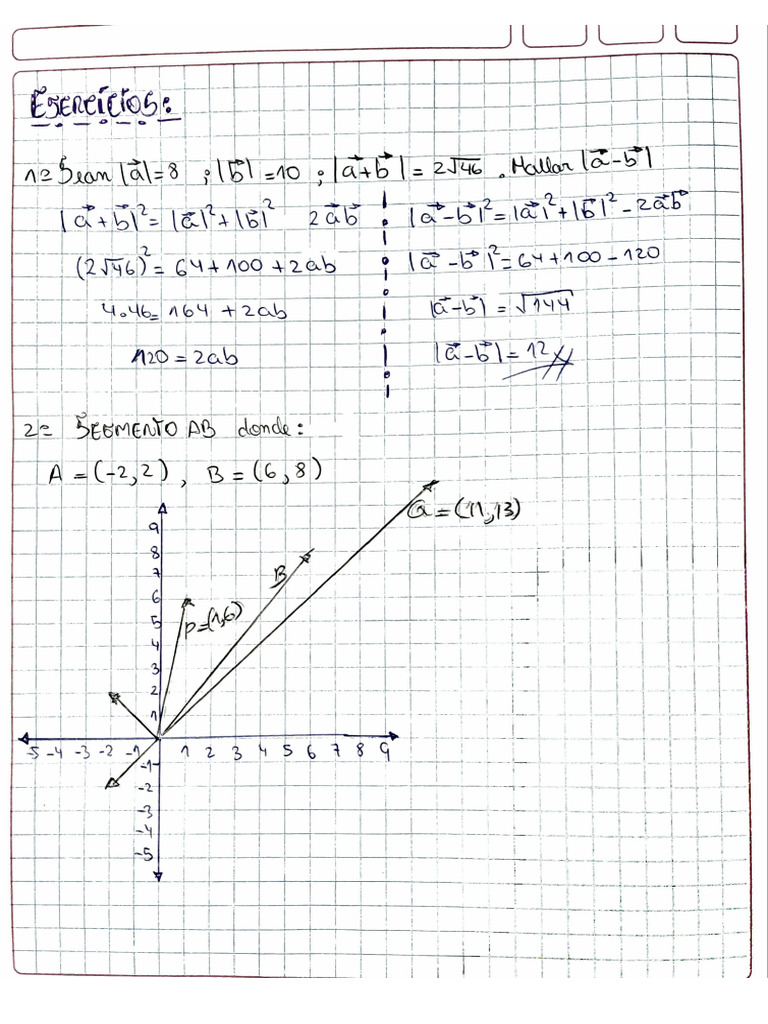 EJERCICIOS:
1= Sean |a⃗|=8 ; |b⃗|=10 ; |a⃗+b⃗|=2√46 . Hallar |a⃗-b⃗|
|a⃗+b⃗|²=|a⃗|²+|b⃗|² 2a⃗b⃗
(2√46)²=64+100+2ab
4.46=164+2ab
120=2ab
|a⃗-b⃗|²=|a⃗|²+|b⃗|²-2a⃗b⃗
|a⃗-b⃗|²=64+100-120
|a⃗-b⃗|=√144
|a⃗-b⃗|=12
2= SEGMENTO AB donde:
A=(-2,2), B=(6,8)
Q=(11,13)
B
P=(1,6)
9
8
7
6
5
4
3
2
1
-5 -4 -3 -2 -1 1 2 3 4 5 6 7 8 9
-1
-2
-3
-4
-5